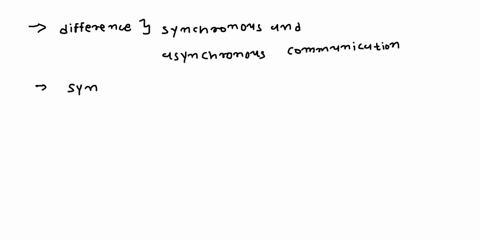 → difference } synchronous and
asynchronous communication
→ syn